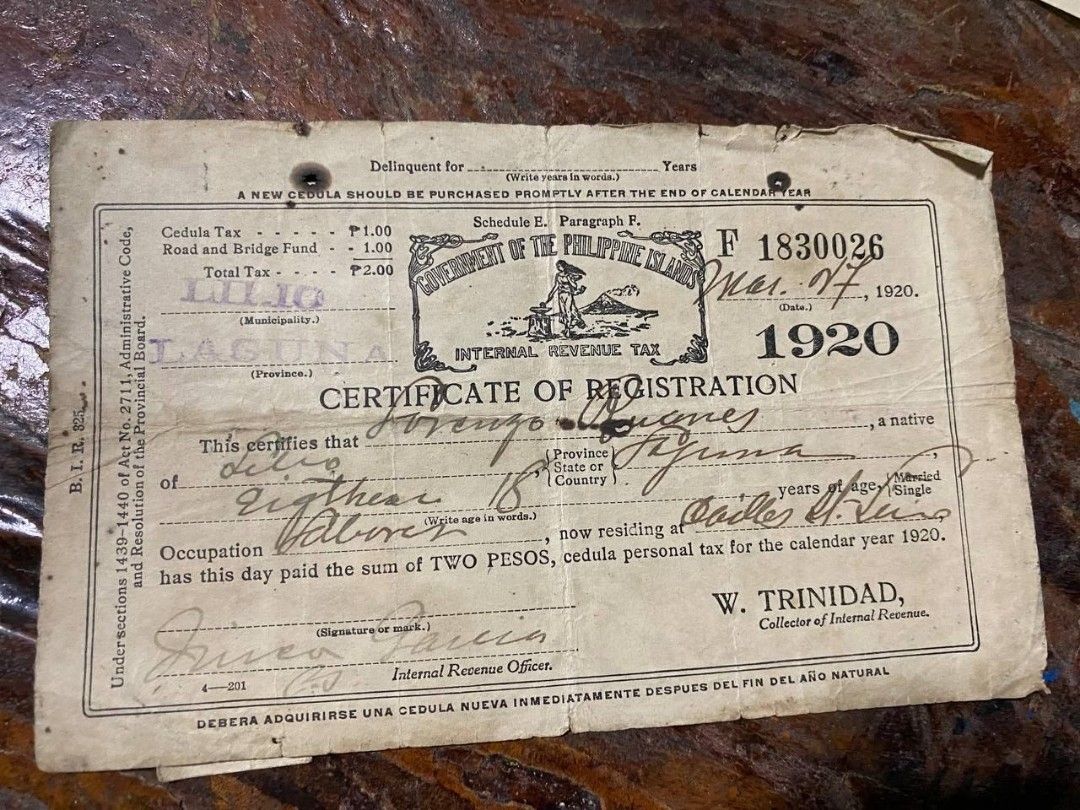 Delinquent for Years
(Write years in words.)
A NEW CEDULA SHOULD BE PURCHASED PROMPTLY AFTER THE END OF CALENDAR YEAR
Under sections 1439-1440 of Act No. 2711, Administrative Code,
and Resolution of the Provincial Board.
B. I. R. 825
Cedula Tax - - - - - ₱1.00
Road and Bridge Fund - - 1.00
Total Tax - - - - ₱2.00
LILIO
(Municipality.)
LAGUNA
(Province.)
Schedule E. Paragraph F.
GOVERNMENT OF THE PHILIPPINE ISLANDS
INTERNAL REVENUE TAX
F 1830026
Mar. 27, 1920.
(Date.)
1920
CERTIFICATE OF REGISTRATION
This certifies that Lorenzo, a native
of Lilio Province State or Country Laguna,
Eigtheen 18 years of age. Married Single
(Write age in words.)
Occupation Laborer, now residing at
has this day paid the sum of TWO PESOS, cedula personal tax for the calendar year 1920.
(Signature or mark.)
W. TRINIDAD,
Collector of Internal Revenue.
Garcia
Internal Revenue Officer.
4—201
DEBERA ADQUIRIRSE UNA CEDULA NUEVA INMEDIATAMENTE DESPUES DEL FIN DEL AÑO NATURAL